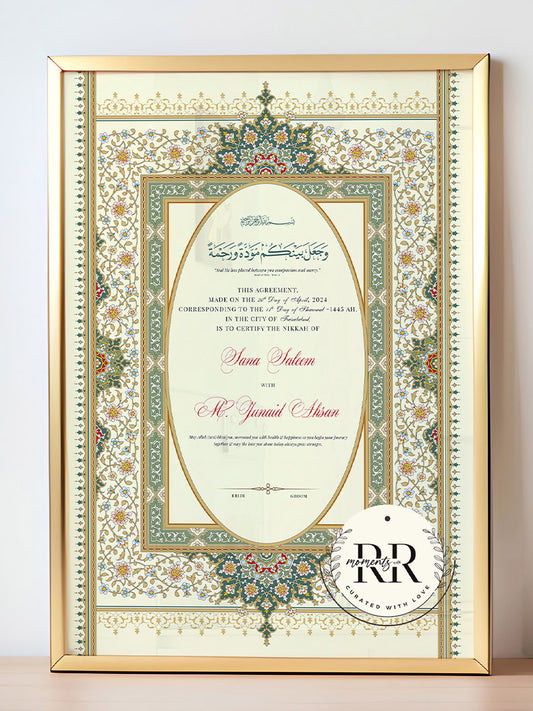 بسم الله الرحمن الرحيم
وَجَعَلَ بَيْنَكُم مَّوَدَّةً وَرَحْمَةً
"And He has placed between you compassion and mercy."
THIS AGREEMENT,
MADE ON THE 20th Day of April, 2024
CORRESPONDING TO THE 11th Day of Shawwal -1445 AH,
IN THE CITY OF Faisalabad,
IS TO CERTIFY THE NIKKAH OF
Sana Saleem
WITH
M. Junaid Ahsan
May Allah (swt) bless you, surround you with health & happiness as you begin your journey
together & may the love you share today always grow stronger.
BRIDE GROOM
RR
moments
CURATED WITH LOVE